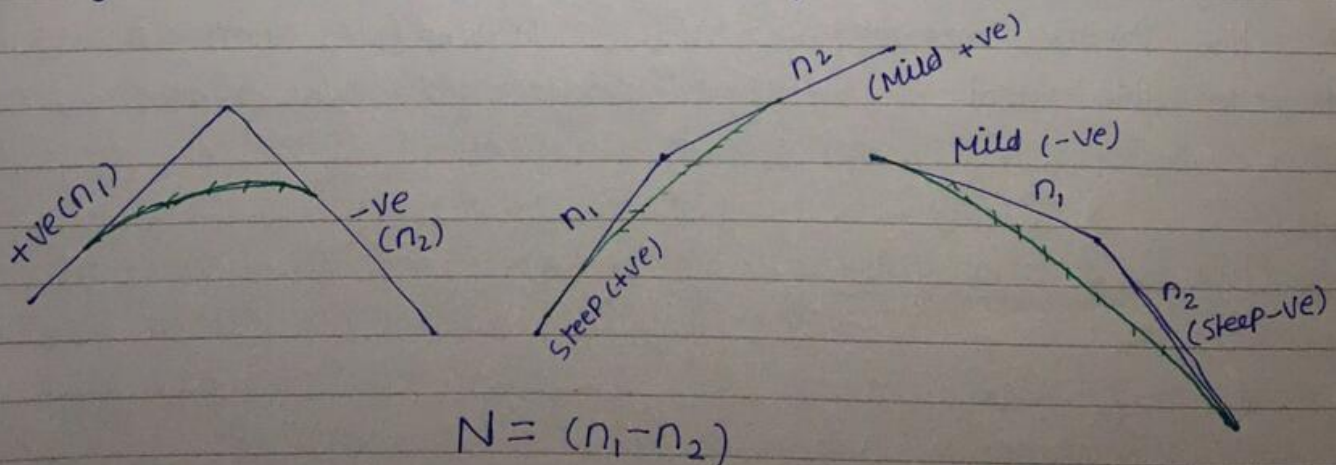 +ve (n₁)
-ve
(n₂)
n₁
steep (+ve)
n₂
(Mild +ve)
Mild (-ve)
n₁
n₂
(steep-ve)
N = (n₁-n₂)